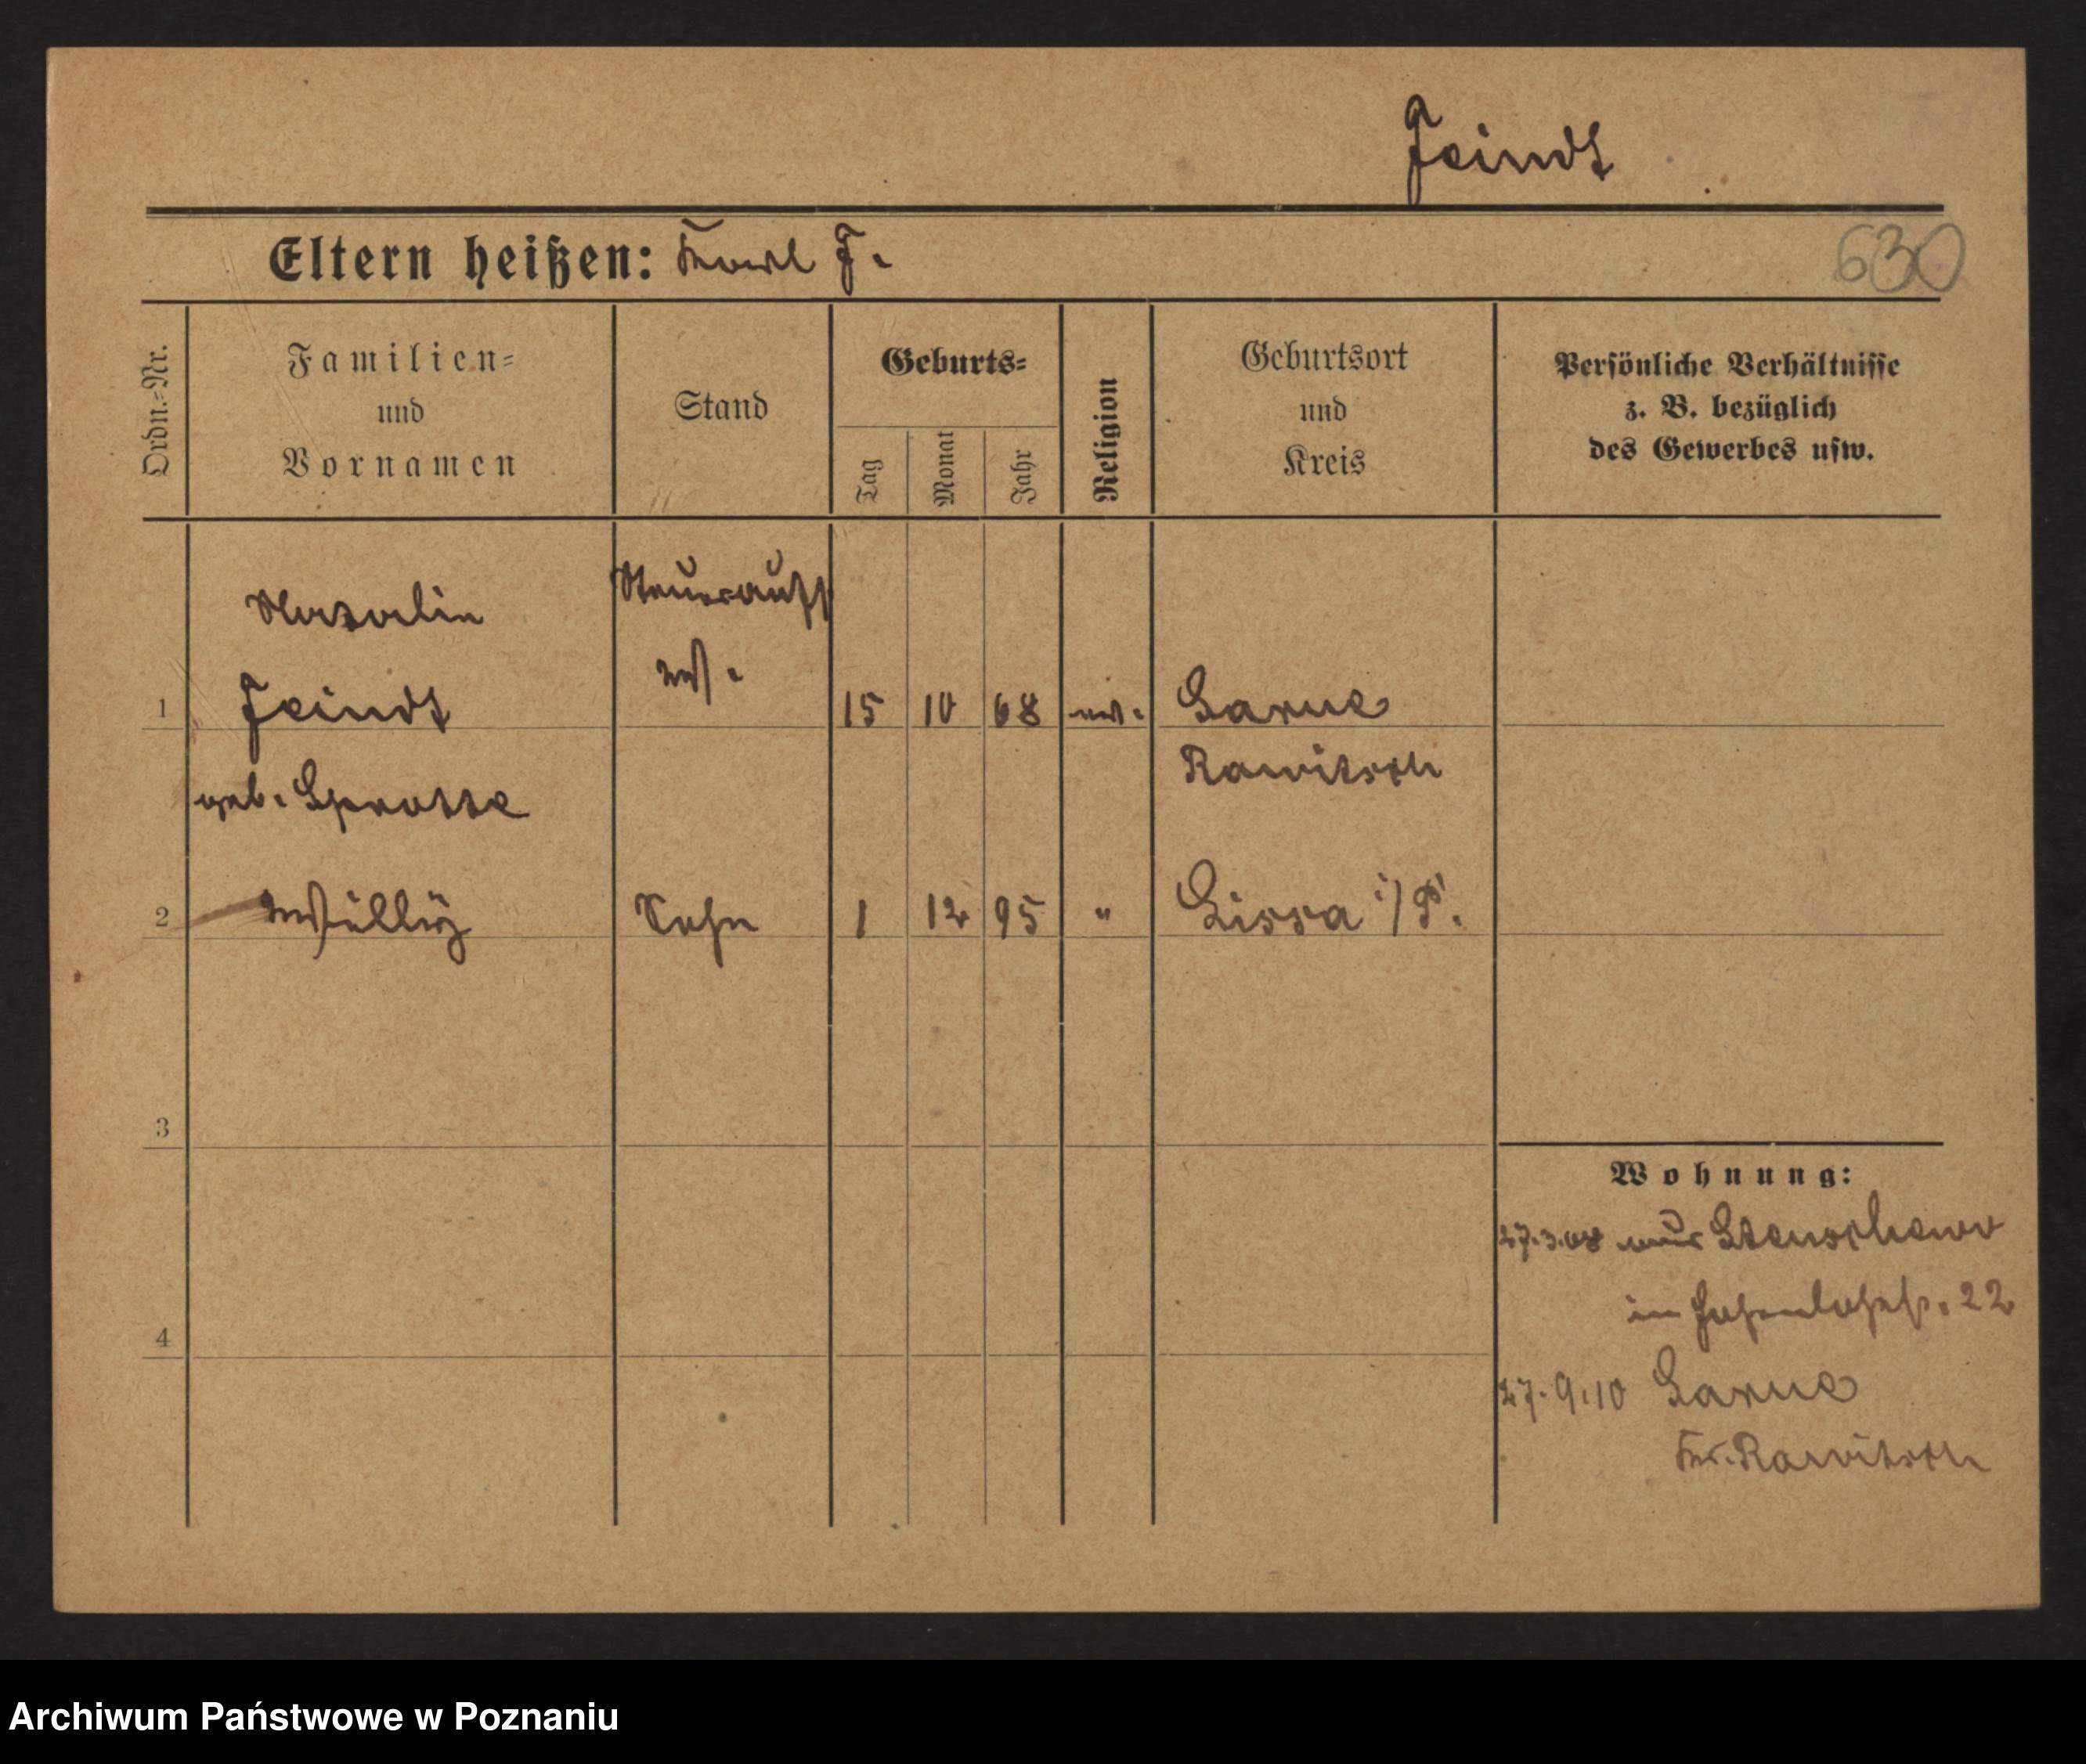 Feindt
Eltern heißen: Karl F.
630
Ordn.-Nr.
Familien-
und
Vornamen
Stand
Geburts-
Tag
Monat
Jahr
Religion
Geburtsort
und
Kreis
Persönliche Verhältnisse
z. B. bezüglich
des Gewerbes usw.
Steueraufs
Ww.
1 Feindt 15 10 68 ev. Sarne
Rawitsch
geb. Sprotte
2 Willy Sohn 1 12 95 " Lissa i/P.
3
Wohnung:
27.3.08 aus Stenschewo
in Hohenlohestr. 22
4
27.9.10 Sarne
Kr. Rawitsch
Archiwum Państwowe w Poznaniu